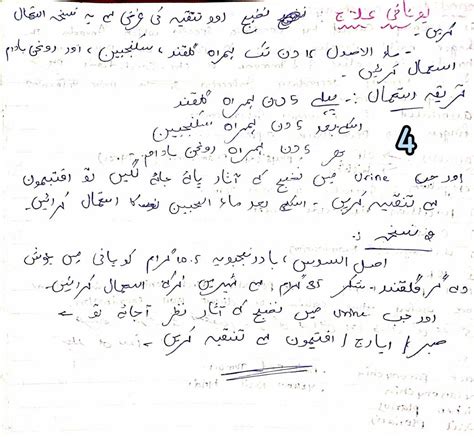 یونانی علاج نضج اور تنقیہ کی غرض سے یہ نسخہ استعمال
کریں۔
- ماء الاصول 15 دن تک ہمراہ گلقند، سکنجبین، اور روغن بادام
استعمال کرائیں۔
طریقہ استعمال :- پہلے 5 دن ہمراہ گلقند
اسکے بعد 5 دن ہمراہ سکنجبین
پھر 5 دن ہمراہ روغن بادام
4
اور جب urine میں نضج کے آثار پائے جانے لگیں تو افتیمون
سے تنقیہ کریں۔ اسکے بعد ماء الجبن کا استعمال کرائیں۔
نسخہ :
اصل السوس، بادرنجبویہ 10.5 گرام کو پانی میں جوش
دے کر گلقند، شکر 35 گرام سے شیریں کرکے استعمال کرائیں۔
اور جب urine میں نضج کے آثار نظر آجائے تو
صبر / ایارج / افتیمون سے تنقیہ کریں۔